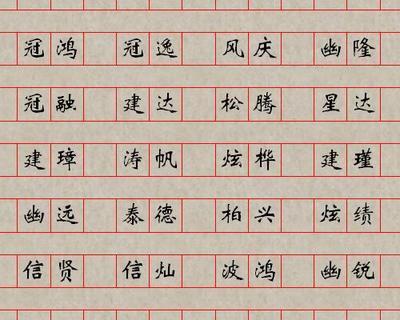 冠鸿 冠逸 风庆 幽隆
冠融 建达 松腾 星达
建璋 涛帆 炫桦 建瑾
幽远 泰德 柏兴 炫绩
信贤 信灿 波鸿 幽锐